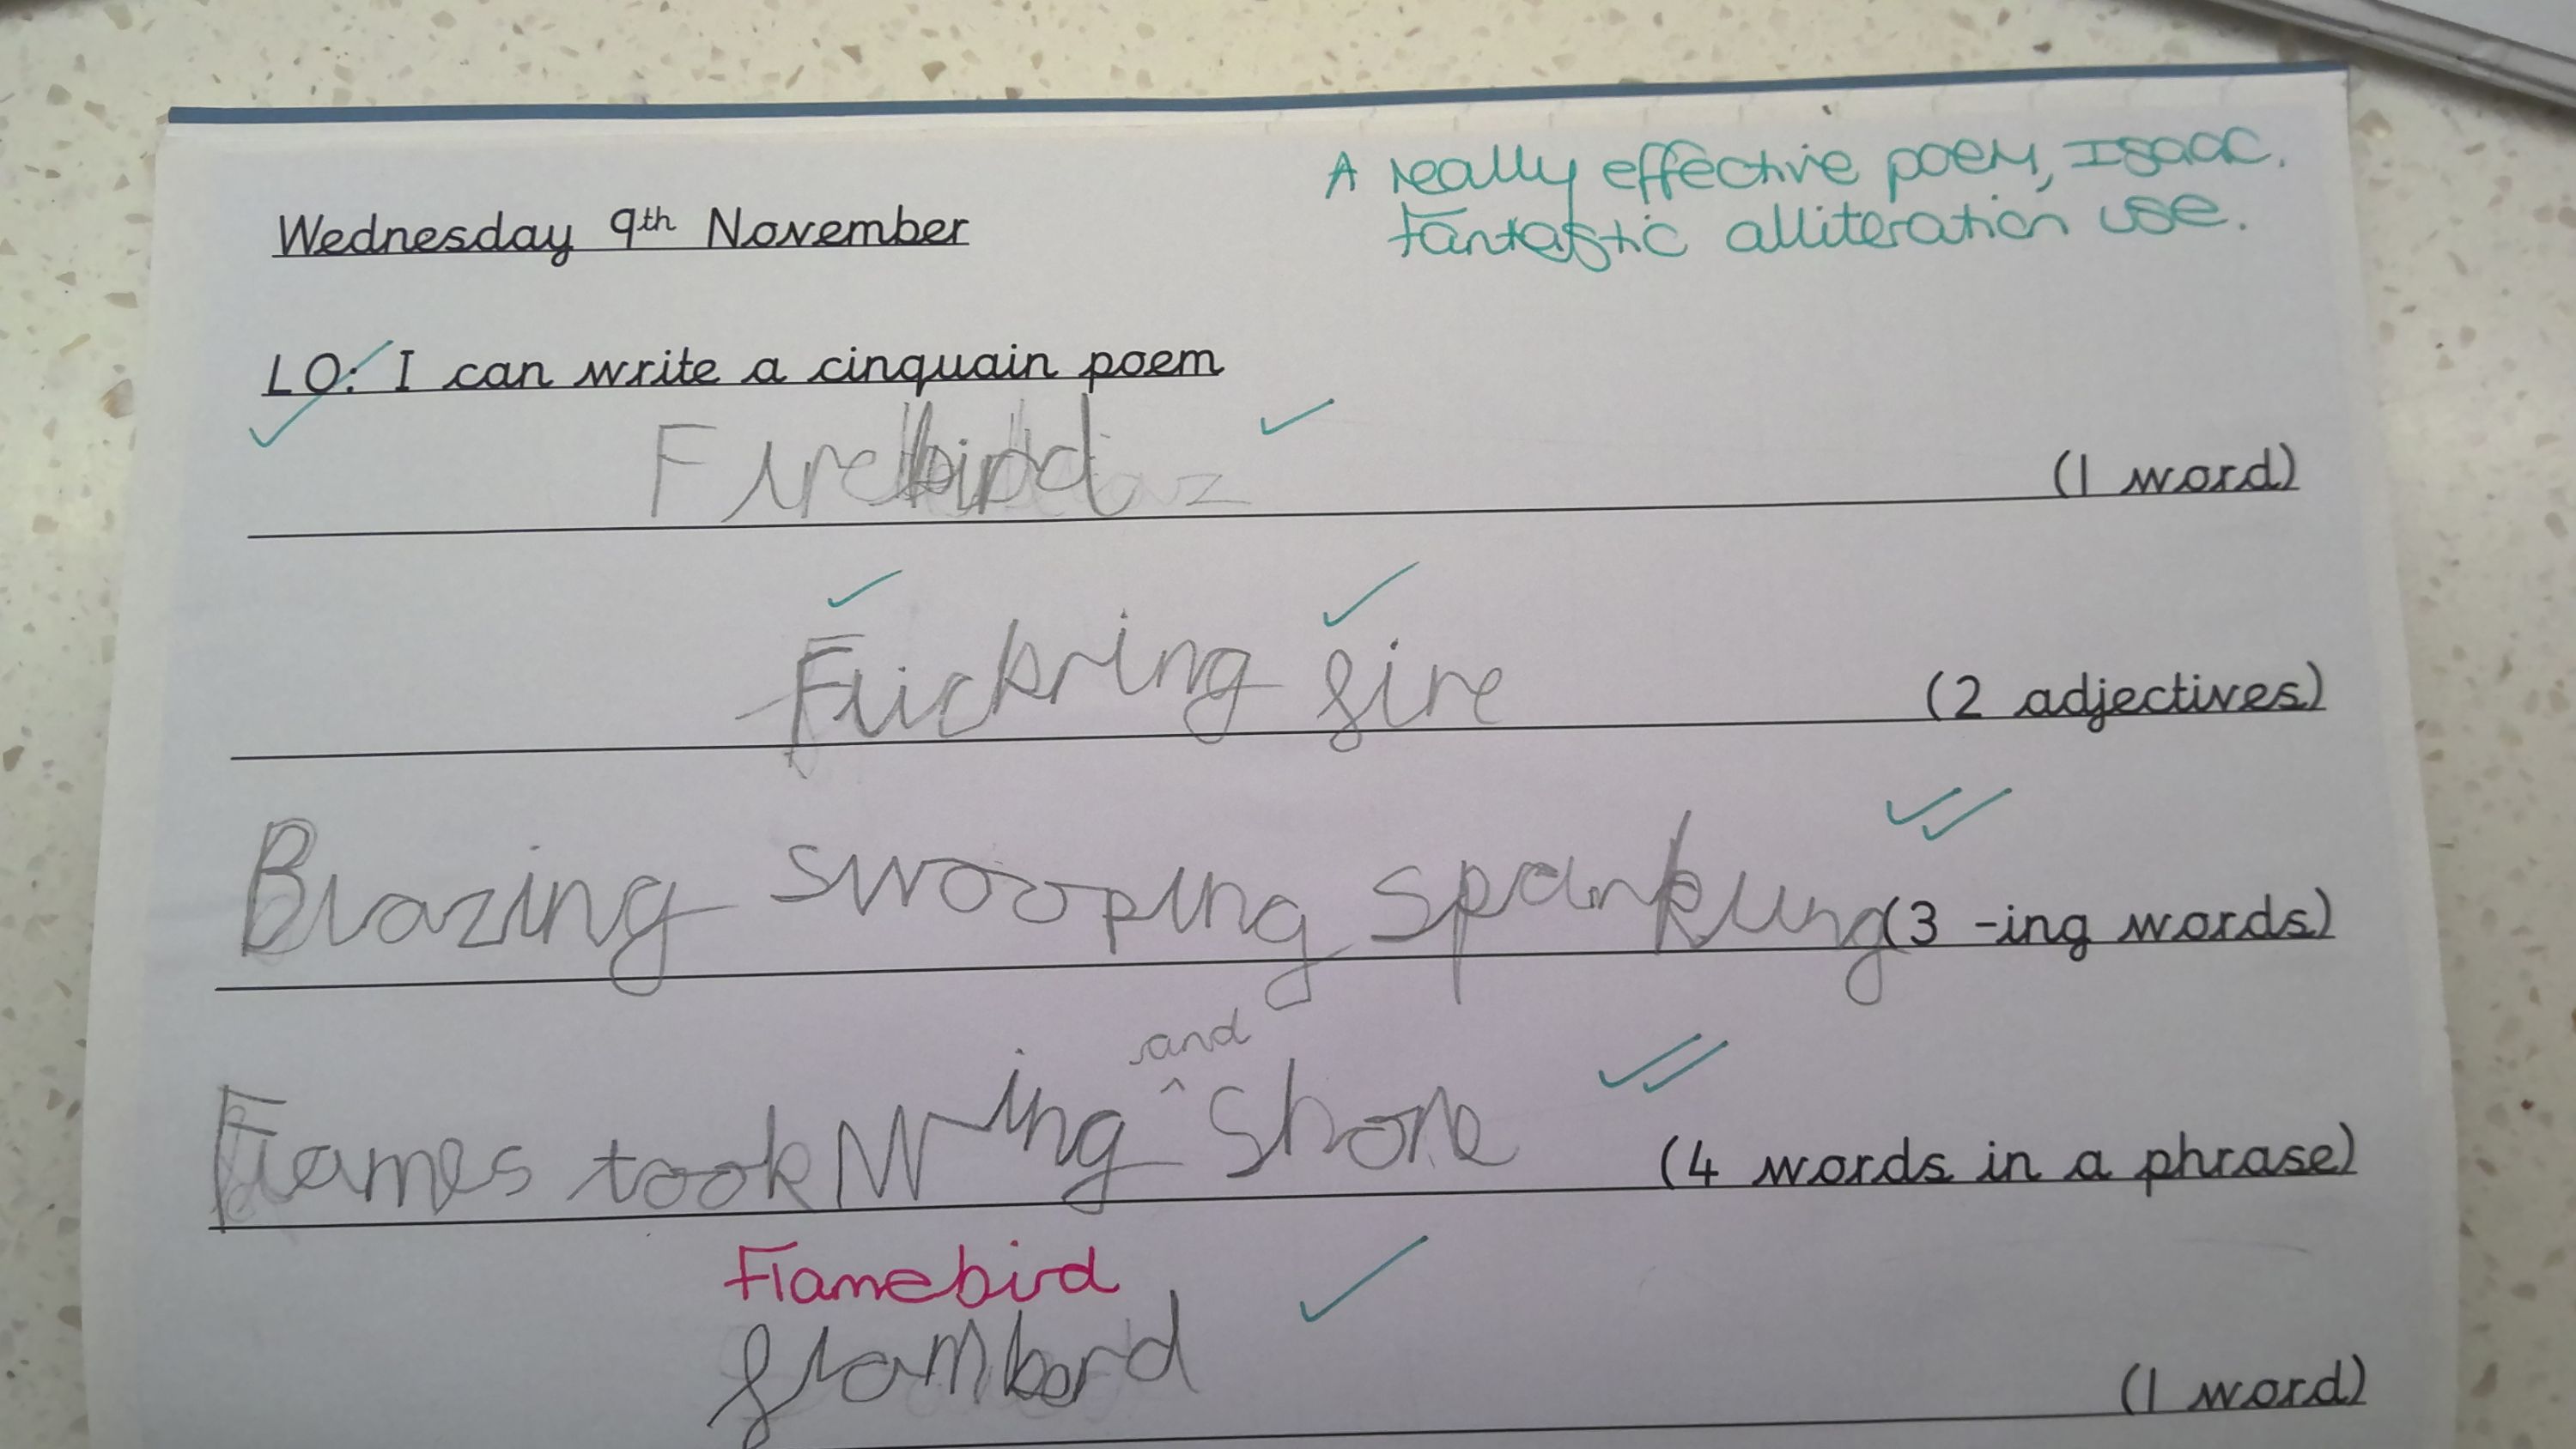 A really effective poem, Isaac.
Fantastic alliteration use.
Wednesday 9th November
LO: I can write a cinquain poem
Firebird (1 word)
Flickring fire (2 adjectives)
Blazing swooping sparkling (3 -ing words)
and
Flames took wing ^ shone (4 words in a phrase)
Flamebird
flambord (1 word)